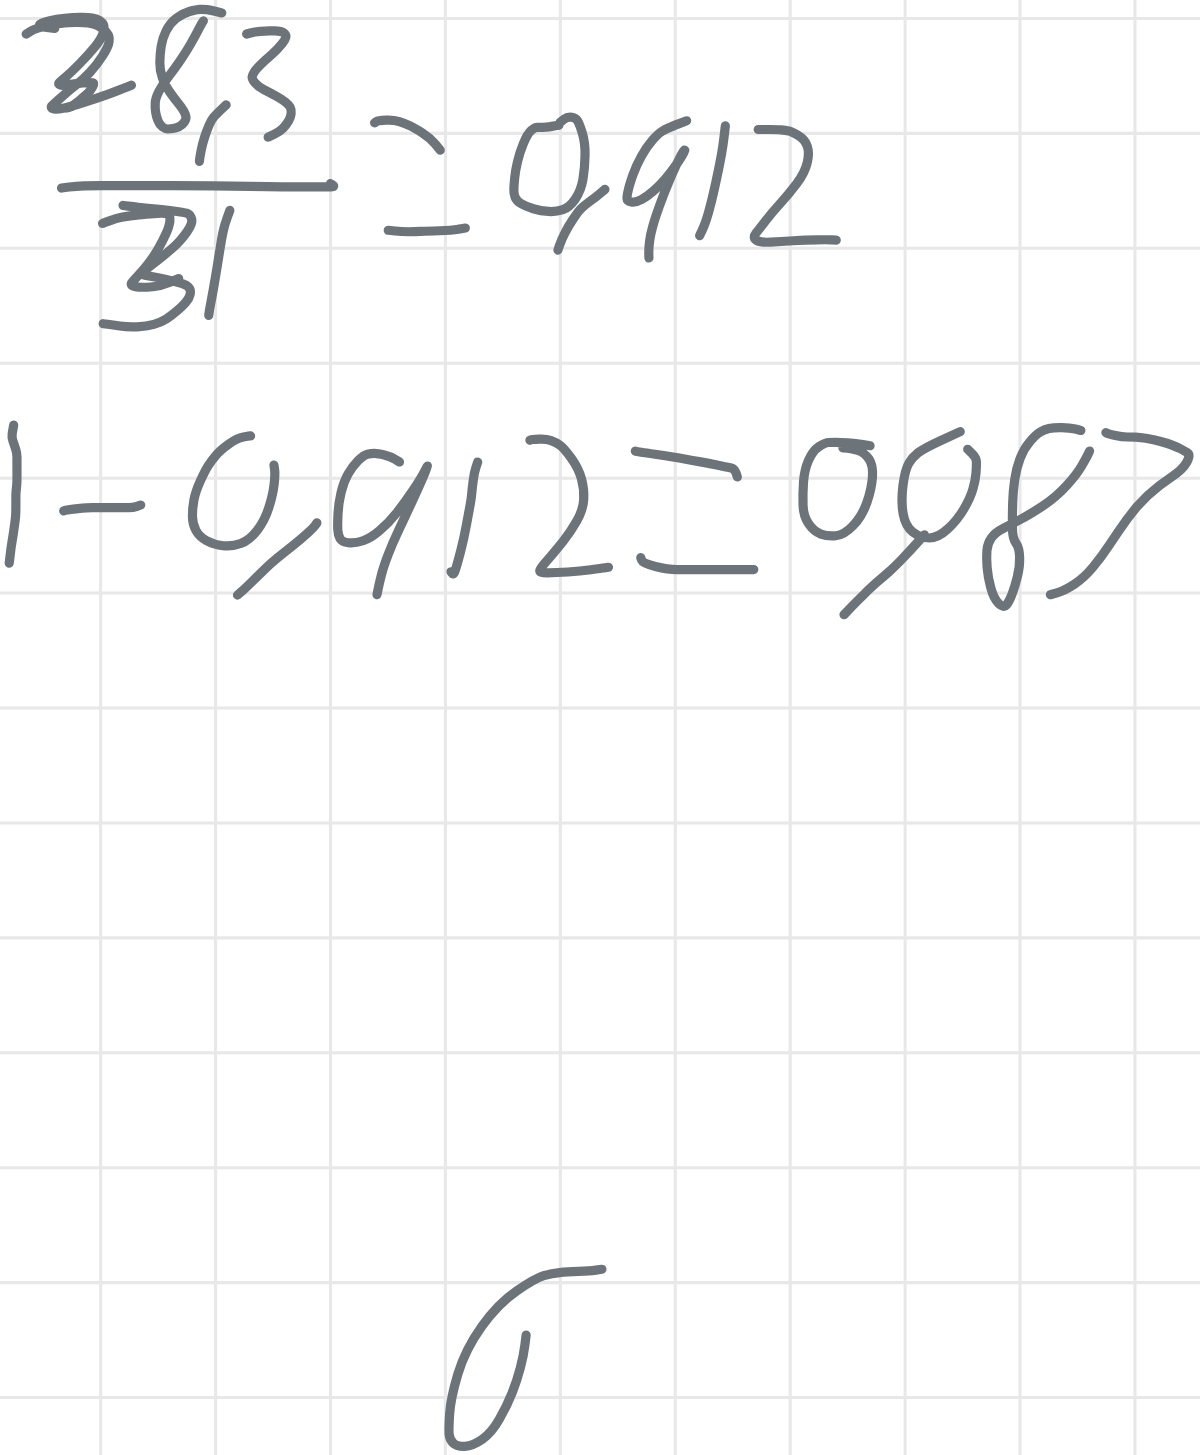 28,3
31
= 0,912
1 - 0,912 = 0,087
σ